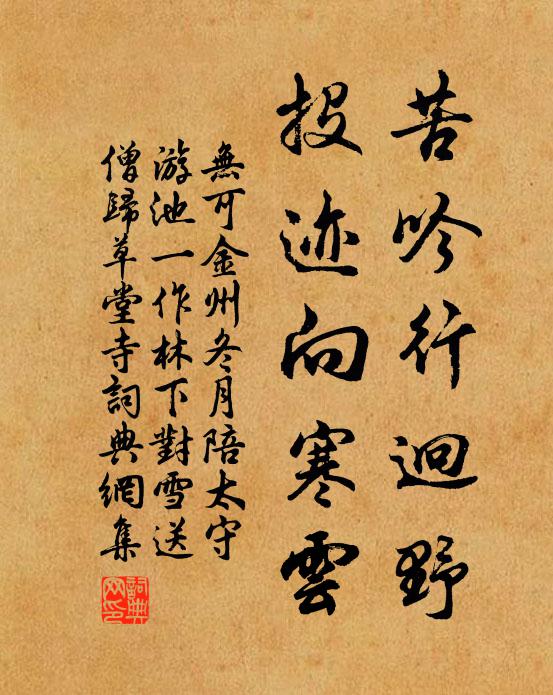 苦吟行迥野
投迹向寒雲
無可金州冬月陪太守
游池一作林下對雪送
僧歸草堂寺詞典網集
詞典網印